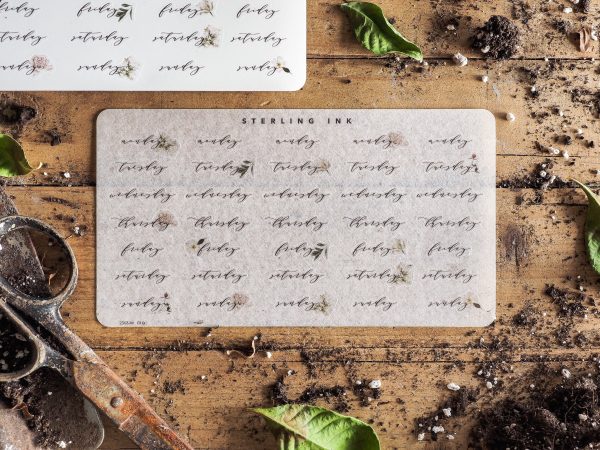 friday friday friday friday friday
saturday saturday saturday saturday
sunday sunday sunday sunday
STERLING INK
monday monday monday monday monday
tuesday tuesday tuesday tuesday tuesday
wednesday wednesday wednesday wednesday wednesday
thursday thursday thursday thursday thursday
friday friday friday friday friday
saturday saturday saturday saturday saturday
sunday sunday sunday sunday sunday